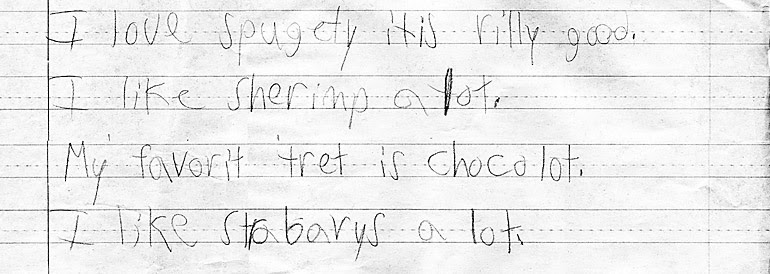 I love spugety itis rilly good.
I like sherimp a lot.
My favorit tret is chocolot.
I like strabarys a lot.